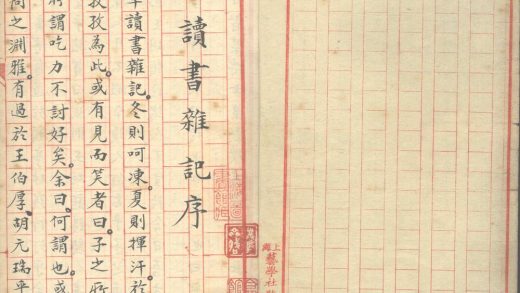 讀書雜記序
讀書雜記。冬則呵凍。夏則揮汗於
孜孜為此。或有見而笑者曰。子之所
所謂吃力不討好矣。余曰。何謂也。或
之淵雅。有過於王伯厚、胡元瑞平
上海
藝學社